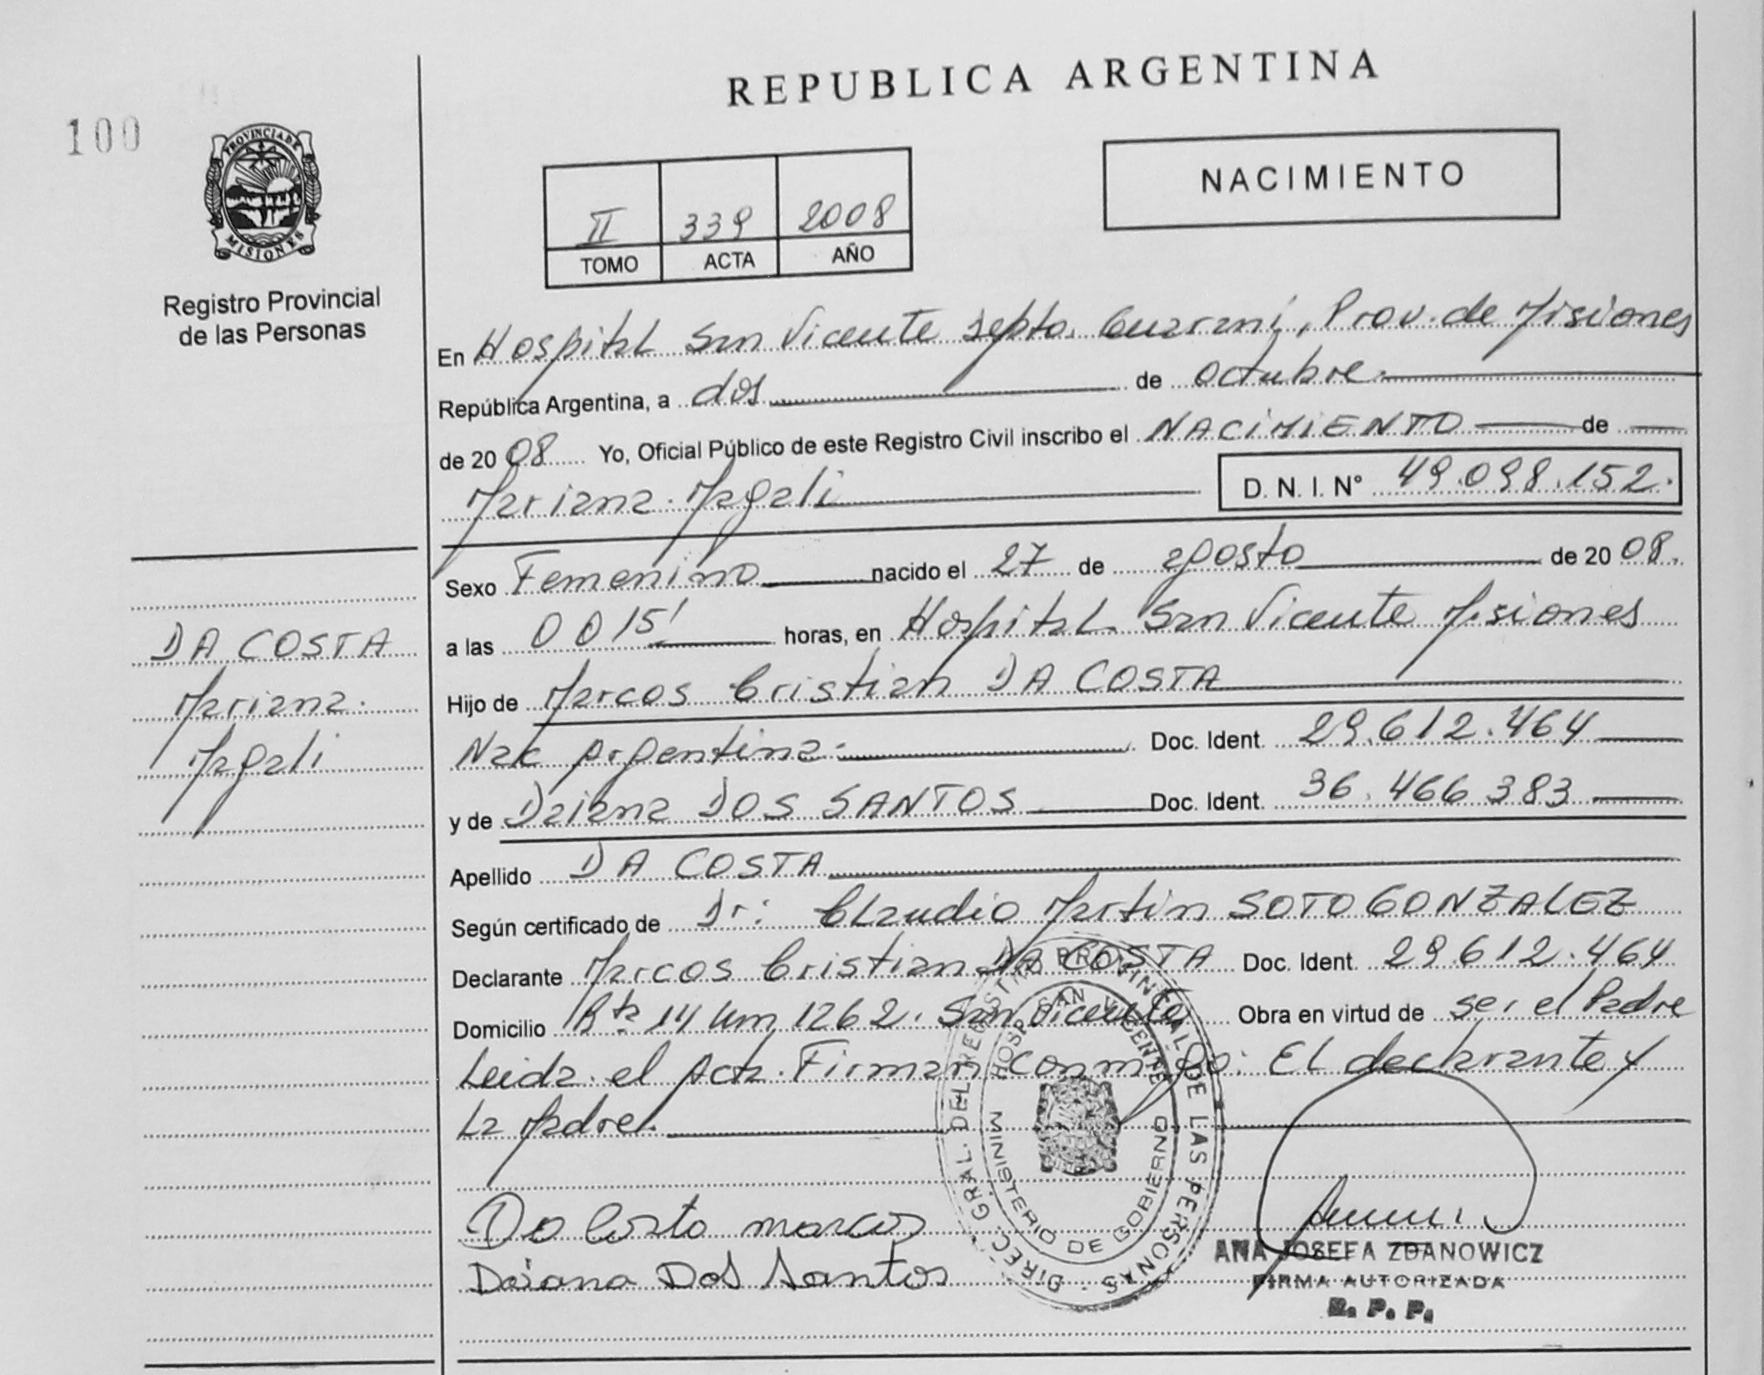 REPUBLICA ARGENTINA
100
PROVINCIA DE
MISIONES
Registro Provincial
de las Personas
NACIMIENTO
II 339 2008
TOMO ACTA AÑO
En Hospital San Vicente Depto. Guarani, Prov. de Misiones
República Argentina, a dos de octubre.
de 20 08 Yo, Oficial Público de este Registro Civil inscribo el NACIMIENTO de
Mariana Magali D. N. I. N° 49.098.152.
Sexo Femenino nacido el 27 de agosto de 20 08.
a las 0015' horas, en Hospital San Vicente Misiones
Hijo de Marcos Cristian DA COSTA
Nac Argentina Doc. Ident. 29.612.464
y de Daiana DOS SANTOS Doc. Ident. 36.466.383
Apellido DA COSTA
Según certificado de Dr: Claudio Martin SOTO GONZALEZ
Declarante Marcos Cristian DA COSTA Doc. Ident. 29.612.464
Domicilio Rta 14 Km 1262. San Vicente Obra en virtud de ser el Padre
Leida el Acta. Firman conmigo: El declarante y
La Madre.
Da Costa marcos
Daiana Dos Santos
DA COSTA
Mariana
Magali
DIREC. GRAL. DEL REGISTRO PROVINCIAL DE LAS PERSONAS
HOSP. SAN VICENTE
MINISTERIO DE GOBIERNO
ANA JOSEFA ZDANOWICZ
FIRMA AUTORIZADA
R. P. P.